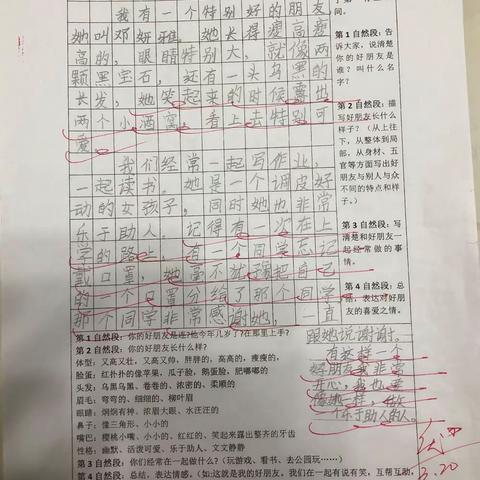 我有一个特别好的朋友,
她叫邓妍雅。她长得瘦高瘦
高的,眼睛特别大,就像两
颗黑宝石,还有一头乌黑的
长发,她笑起来的时候露出
两个小酒窝,看上去特别可
爱。
我们经常一起写作业,
一起读书。她是一个调皮好
动的女孩子,同时她也非常
乐于助人。记得有一次在上
学的路上,有一个同学忘记
戴口罩,她毫不犹豫把自己
的一个口罩分给了那个同学
那个同学非常感谢她,一直
跟她说谢谢。
有这样一个
好朋友我非常
开心,我也要
像她一样,做
个乐于助人的人。
间。
第1自然段:告
诉大家,说清楚
你的好朋友是
谁?叫什么名
字?
第2自然段:描
写好朋友长什么
样子?(从上往
下,从整体到局
部,从身材、五
官等方面写出好
朋友与别人与众
不同的特点和样
子。)
第3自然段:写
清楚和好朋友一
起经常做的事
情。
第4自然段:总
结,表达对好朋
友的喜爱之情。
第1自然段:你的好朋友是谁?他今年几岁了?在那里上手?
第2自然段:你的好朋友长什么样?
体型:又高又壮,又高又帅,胖胖的,高高的,瘦瘦的,
脸蛋:红扑扑的像苹果,瓜子脸,鹅蛋脸,肥嘟嘟的
头发:乌黑乌黑、卷卷的、浓密的、柔顺的
眉毛:弯弯的、细细的、柳叶眉
眼睛:炯炯有神,浓眉大眼、水汪汪的
鼻子:像三角形、小小的
嘴巴:樱桃小嘴、小小的、红红的、笑起来露出整齐的牙齿
性格:幽默、活泼可爱、乐于助人、文文静静
第3自然段:你们经常在一起做什么?(玩游戏、看书、去公园玩……)
第4自然段:总结,表达情感。(如:这就是我的好朋友,我们在一起有说有笑,互帮互助,
优
3.20